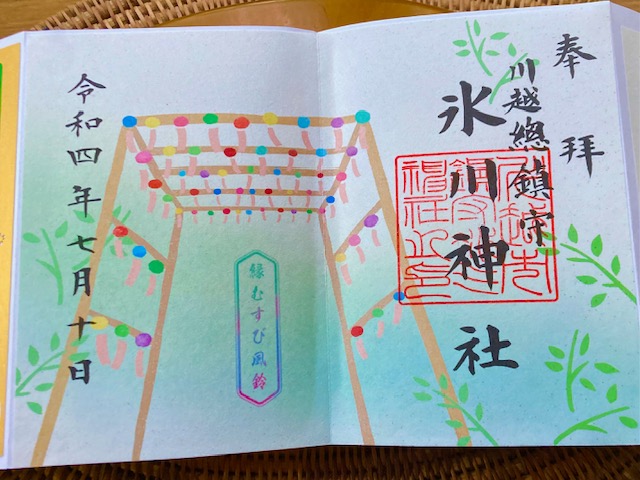 奉拝
川越總鎮守
氷川神社
縁むすび風鈴
令和四年七月十日